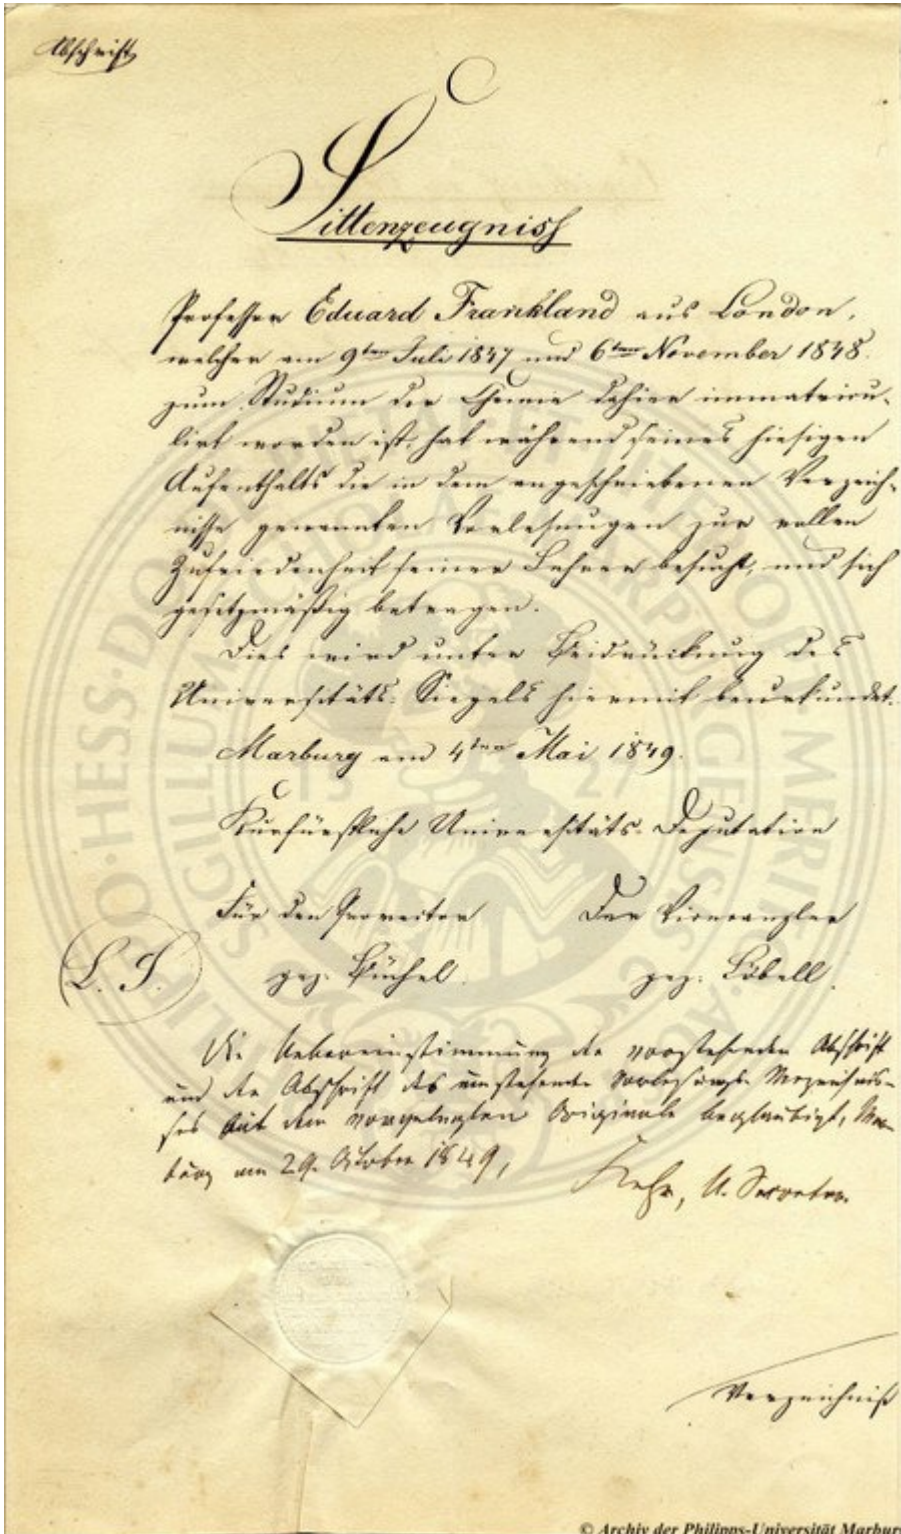 Abschrift
Sittenzeugniss
Professor Eduard Frankland aus London,
welcher am 9ten Juli 1847 und 6ten November 1848.
zum Studium der Chemie dahier immatricu-
lirt worden ist, hat während seines hiesigen
Aufenthalts die in dem angeschriebenen Verzeich-
nisse genannten Vorlesungen zur vollen
Zufriedenheit seiner Lehrer besucht, und sich
gesetzmäßig betragen.
Dies wird unter Beidrückung des
Universitäts-Siegels hiermit beurkundet.
Marburg am 4ten Mai 1849.
Kurfürstliche Universitäts-Deputation
Für den Prorector Der Vicecanzler
L. S. gez. Büchel. gez. Löbell.
Die Uebereinstimmung der vorstehenden Abschrift
und der Abschrift des umstehenden Vorlesungs-Verzeichnis-
ses mit dem vorgelegten Originale beglaubigt, Mar-
burg am 29. October 1849,
U. Secretar.
Verzeichniß
© Archiv der Philipps-Universität Marburg